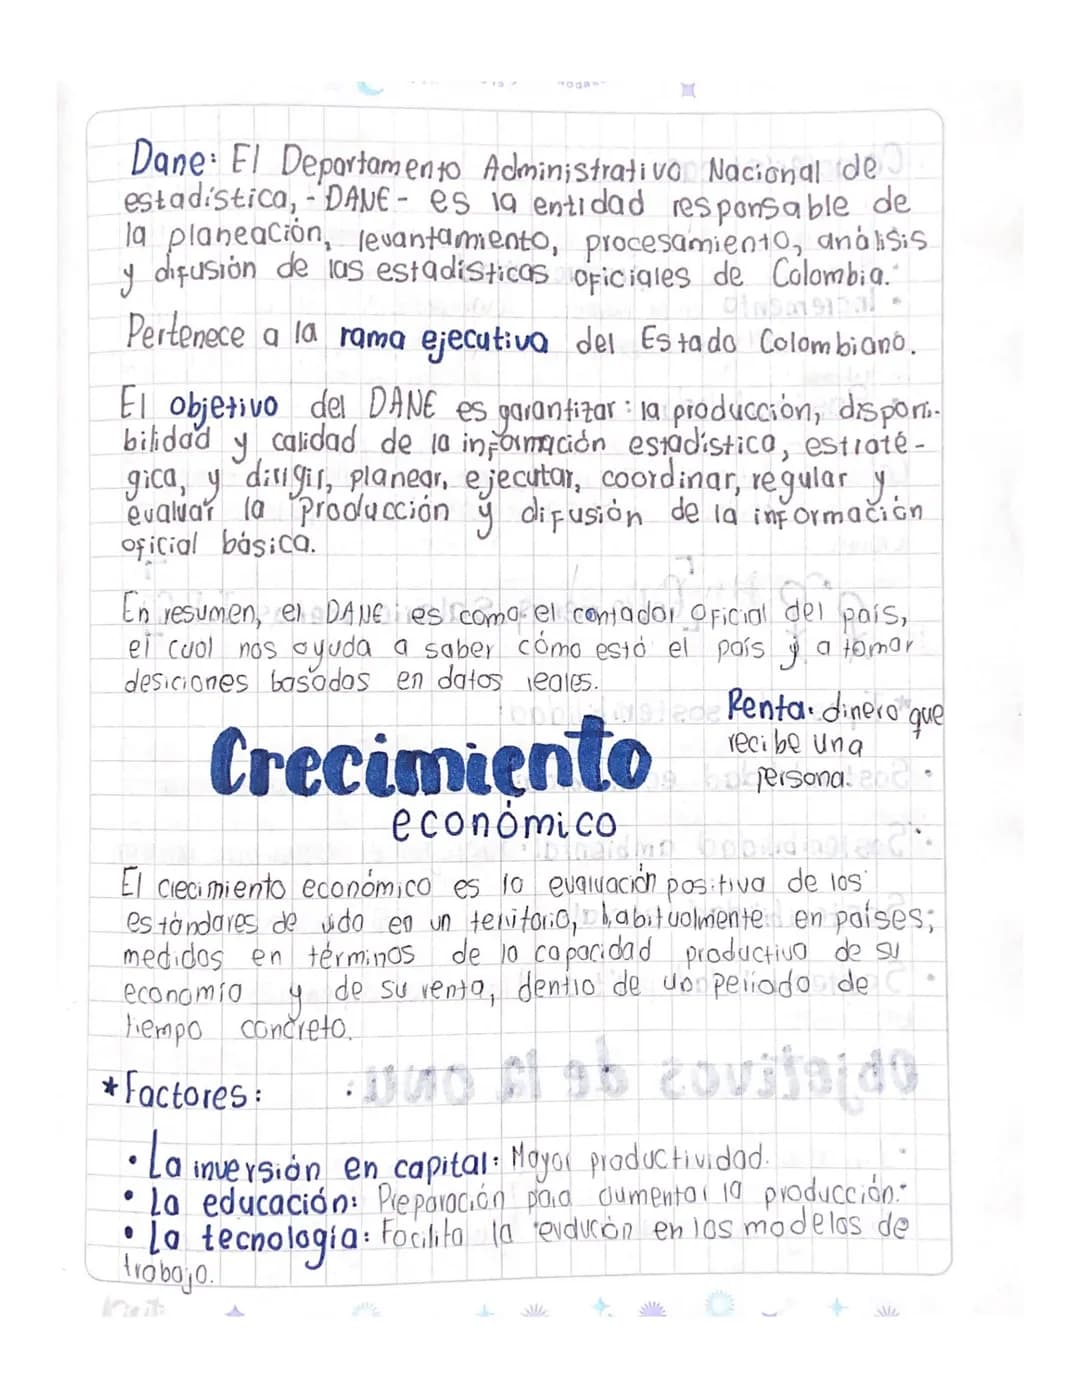 Dane: El Departamento Administrativo Nacional de
estadística, - DANE - es la entidad responsable de
la planeación, levantamiento, procesamiento, análisis
y difusión de las estadísticas oficiales de Colombia.
Pertenece a la rama ejecutiva del Estado Colombiano.
El objetivo del DANE es garantizar: la producción, disponi-
bilidad y calidad de la información estadística, estraté-
gica, y dirigir, planear, ejecutar, coordinar, regular y
evaluar la producción y difusión de la información
oficial básica.
En resumen, el DANE es como el contador oficial del país,
el cual nos ayuda a saber cómo está el país y a tomar
desiciones basadas en datos reales.
Renta: dinero que
recibe una
persona.
Crecimiento
económico
El crecimiento económico es la evaluación positiva de los
estándares de vida en un territorio, habitualmente en países;
medidos en términos de la capacidad productiva de su
economía y de su renta, dentro de un periodo de
tiempo concreto.
*Factores:
• La inversión en capital: Mayor productividad.
• La educación: Preparación para aumentar la producción.
• La tecnología: Facilita la evolución en los modelos de
trabajo.
Objetivos de la onu: